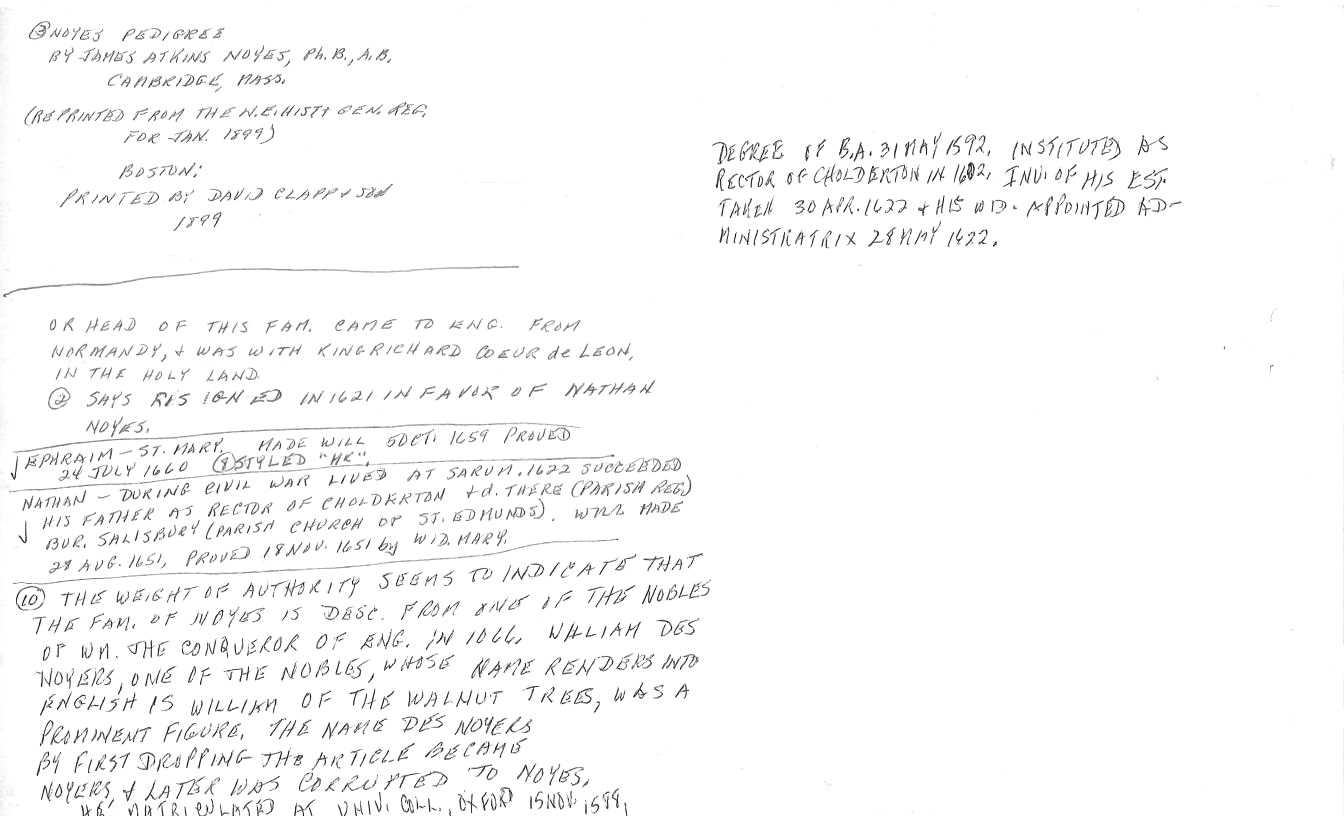 ③ NOYES PEDIGREE
BY JAMES ATKINS NOYES, Ph.B., A.B.
CAMBRIDGE, MASS.
(REPRINTED FROM THE N.E. HIST & GEN. REG.
FOR JAN. 1899)
BOSTON:
PRINTED BY DAVID CLAPP & SON
1899
OR HEAD OF THIS FAM. CAME TO ENG. FROM
NORMANDY, & WAS WITH KING RICHARD COEUR de LEON,
IN THE HOLY LAND
② SAYS RESIGNED IN 1621 IN FAVOR OF NATHAN
NOYES.
EPHRAIM – ST. MARY. MADE WILL 5 OCT. 1659 PROVED
24 JULY 1660 ⑧ STYLED "MR".
NATHAN – DURING CIVIL WAR LIVED AT SARUM. 1622 SUCCEEDED
HIS FATHER AS RECTOR OF CHOLDERTON & d. THERE (PARISH REG.)
BUR. SALISBURY (PARISH CHURCH OF ST. EDMUNDS). WILL MADE
28 AUG. 1651, PROVED 18 NOV. 1651 by WID. MARY.
⑩ THE WEIGHT OF AUTHORITY SEEMS TO INDICATE THAT
THE FAM. OF NOYES IS DESC. FROM ONE OF THE NOBLES
OF WM. THE CONQUEROR OF ENG. IN 1066. WILLIAM DES
NOYERS, ONE OF THE NOBLES, WHOSE NAME RENDERS INTO
ENGLISH IS WILLIAM OF THE WALNUT TREES, WAS A
PROMINENT FIGURE. THE NAME DES NOYERS
BY FIRST DROPPING THE ARTICLE BECAME
NOYERS, & LATER WAS CORRUPTED TO NOYES.
HE MATRICULATED AT UNIV. COLL., OXFORD 15 NOV. 1588,
DEGREE OF B.A. 31 MAY 1592. INSTITUTED AS
RECTOR OF CHOLDERTON IN 1602. INV. OF HIS EST.
TAKEN 30 APR. 1622 & HIS WID. APPOINTED AD-
MINISTRATRIX 28 MAY 1622.